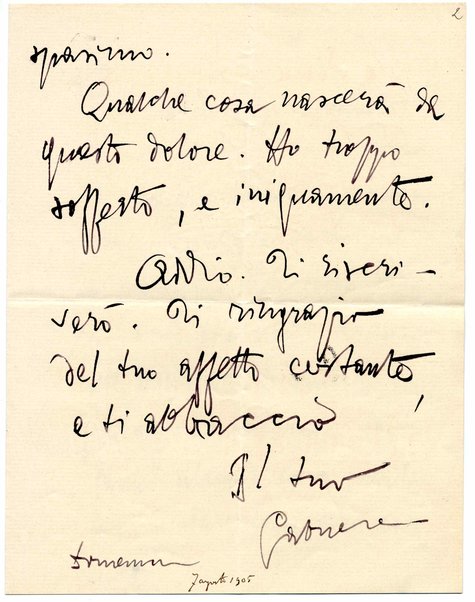 2
spasimo.
Qualche cosa nascerà da
questo dolore. Ho troppo
sofferto, e iniquamente.
Addio. Ti riscri-
verò. Ti ringrazio
del tuo affetto costante
e ti abbraccio
Il tuo
Gabriele
7 agosto 1905